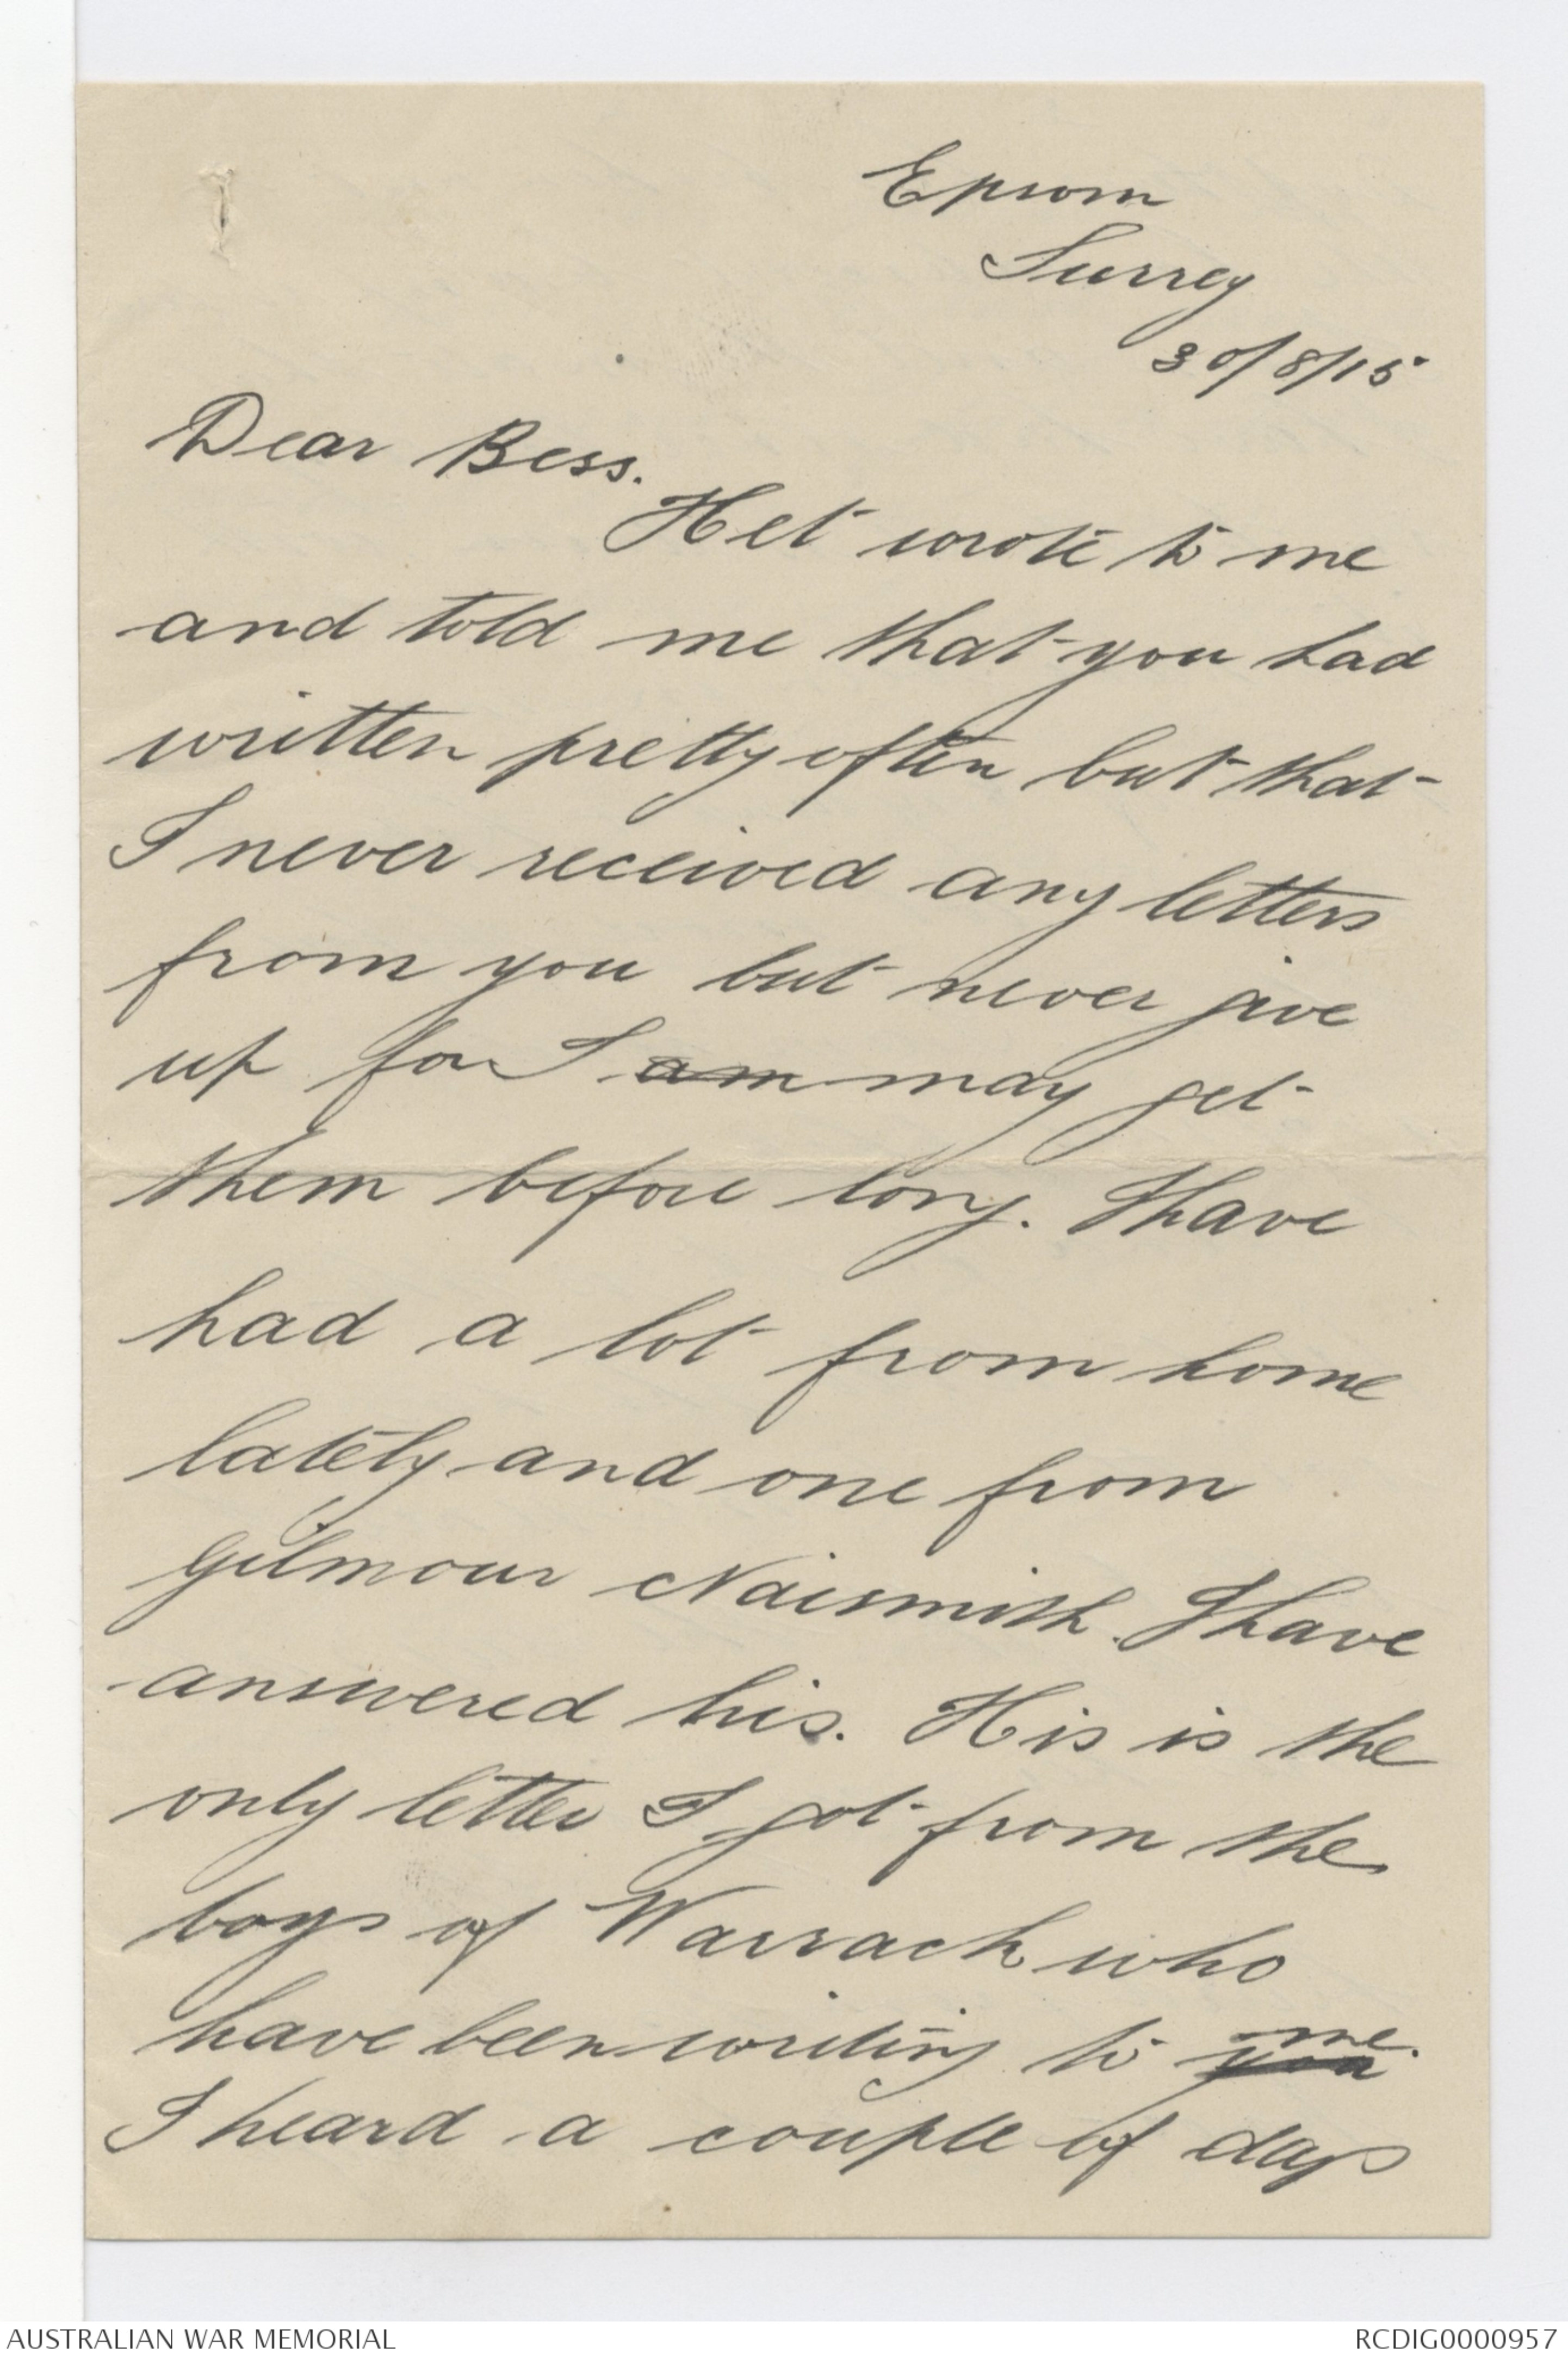 Epsom
Surrey
30/8/15
Dear Bess.
Het wrote to me
and told me that you had
written pretty often but that
I never received any letters
from you but never give
up for I am may get
them before long. I have
had a lot from home
lately and one from
Gilmour Naismith. I have
answered his. His is the
only letter I got from the
boys of Warrack who
have been writing to you me.
I heard a couple of days
AUSTRALIAN WAR MEMORIAL RCDIG0000957